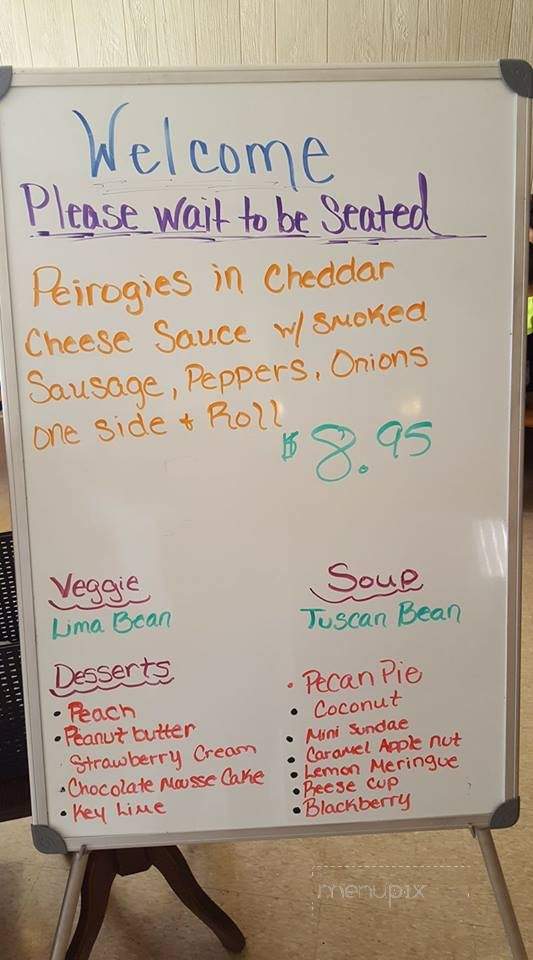 Welcome
Please wait to be Seated
Peirogies in Cheddar
Cheese Sauce w/ smoked
Sausage, Peppers, Onions
one side + Roll
$8.95
Veggie
Lima Bean
Soup
Tuscan Bean
Desserts
• Peach
• Peanut butter
Strawberry Cream
• Chocolate Mousse Cake
• Key Lime
• Pecan Pie
• Coconut
• Mini Sundae
• Caramel Apple nut
• Lemon Meringue
• Reese Cup
• Blackberry
menupix